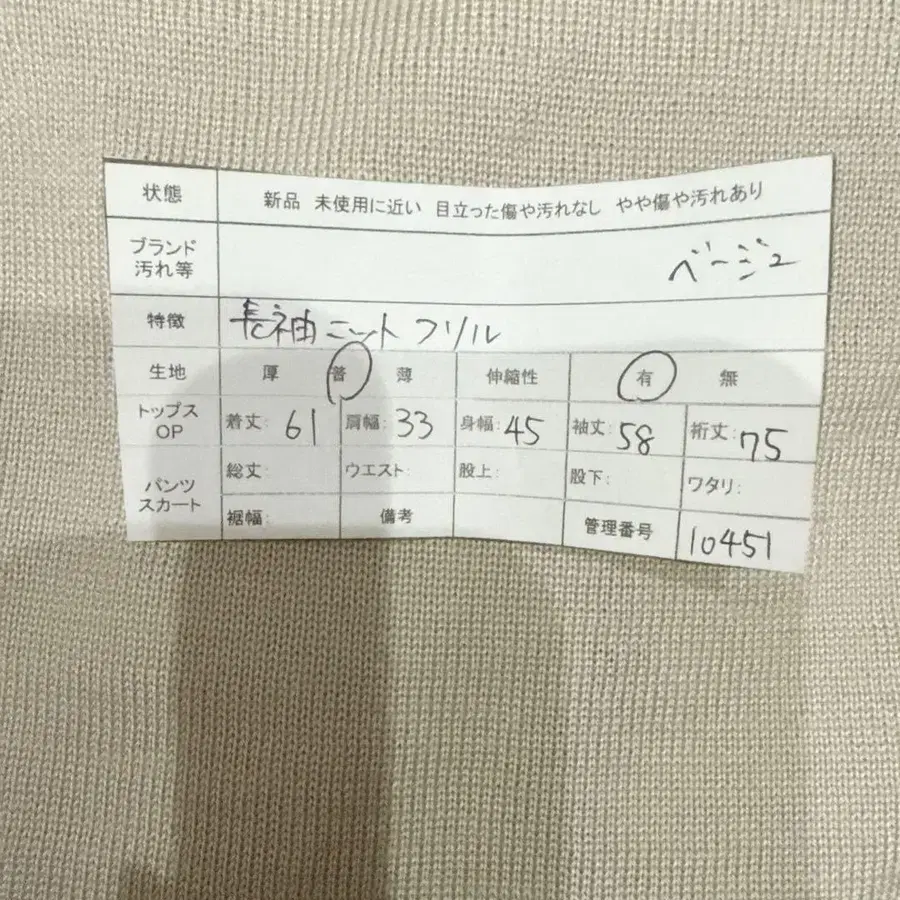 状態 新品 未使用に近い 目立った傷や汚れなし やや傷や汚れあり
ブランド
汚れ等 ベージュ
特徴 長袖ニット フリル
生地 厚 普 薄 伸縮性 有 無
トップス
OP 着丈: 61 肩幅: 33 身幅: 45 袖丈: 58 裄丈: 75
パンツ
スカート 総丈: ウエスト: 股上: 股下: ワタリ:
裾幅: 備考 管理番号 10451